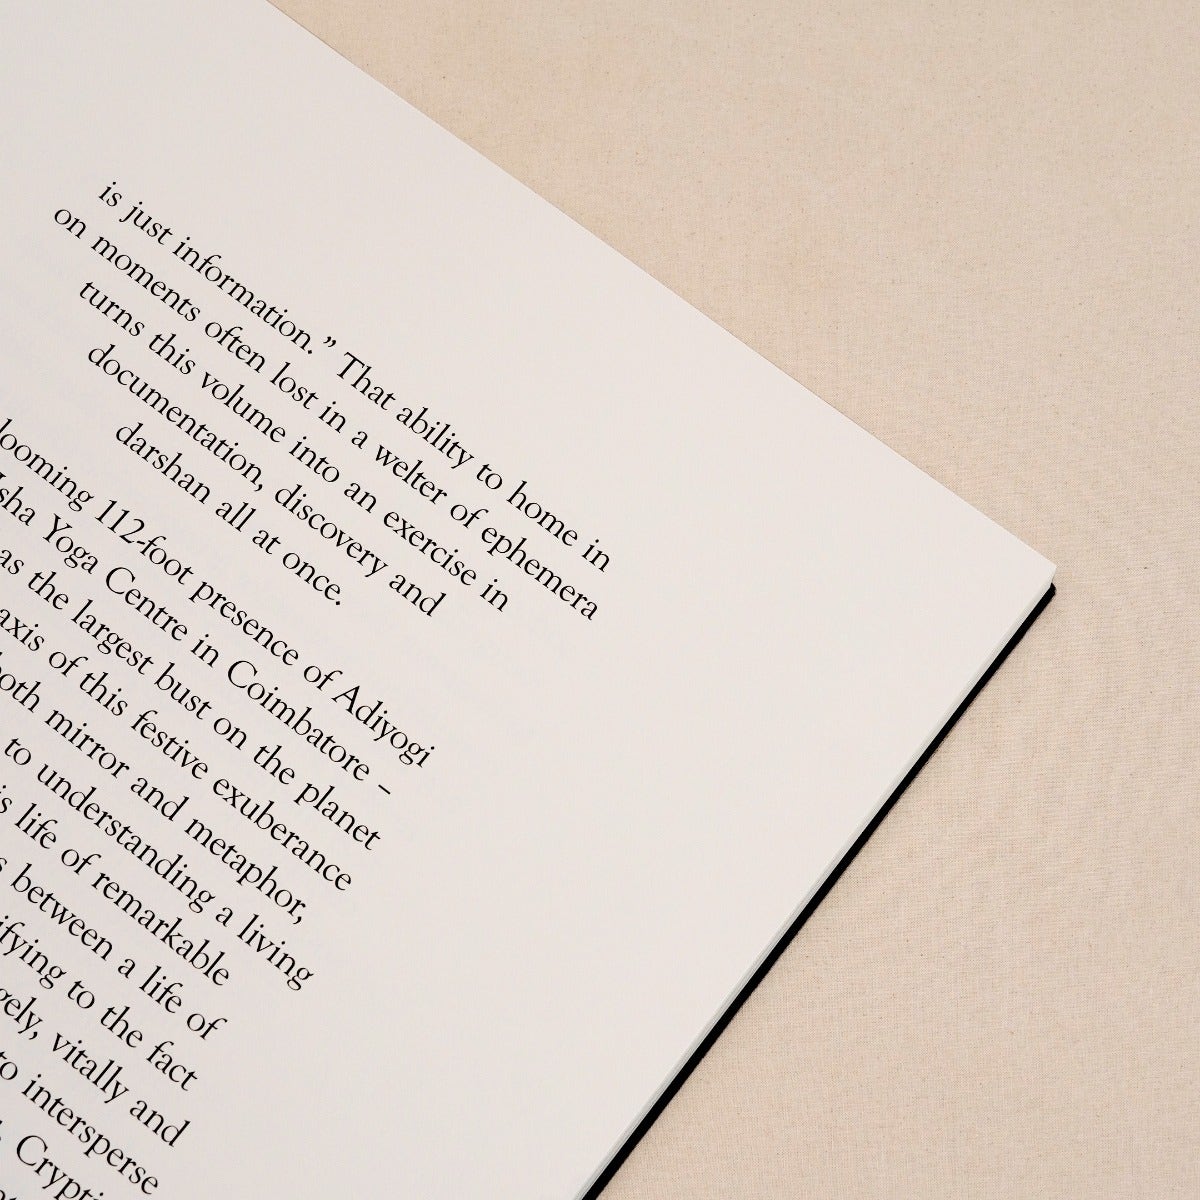 is just information.” That ability to home in
on moments often lost in a welter of ephemera
turns this volume into an exercise in
documentation, discovery and
darshan all at once.
looming 112-foot presence of Adiyogi
Yoga Centre in Coimbatore –
as the largest bust on the planet
axis of this festive exuberance
both mirror and metaphor,
to understanding a living
life of remarkable
between a life of
to the fact
vitally and
to intersperse